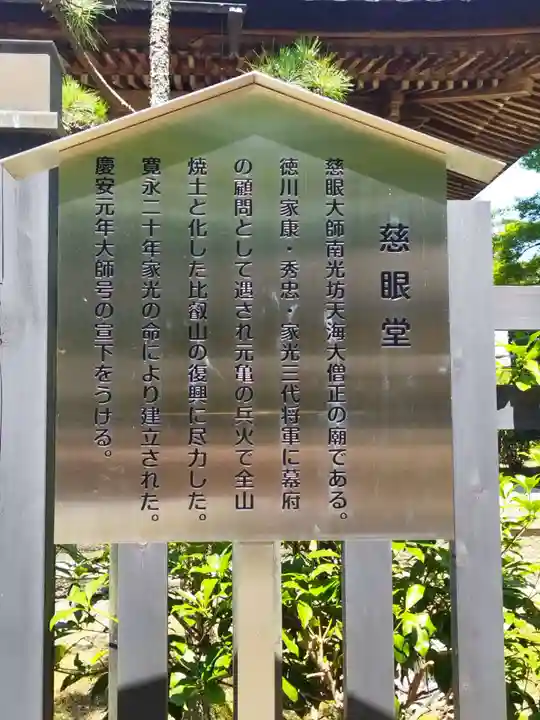 慈眼堂
慈眼大師南光坊天海大僧正の廟である。
徳川家康・秀忠・家光三代将軍に幕府
の顧問として遇され元亀の兵火で全山
焼土と化した比叡山の復興に尽力した。
寛永二十年家光の命により建立された。
慶安元年大師号の宣下をうける。